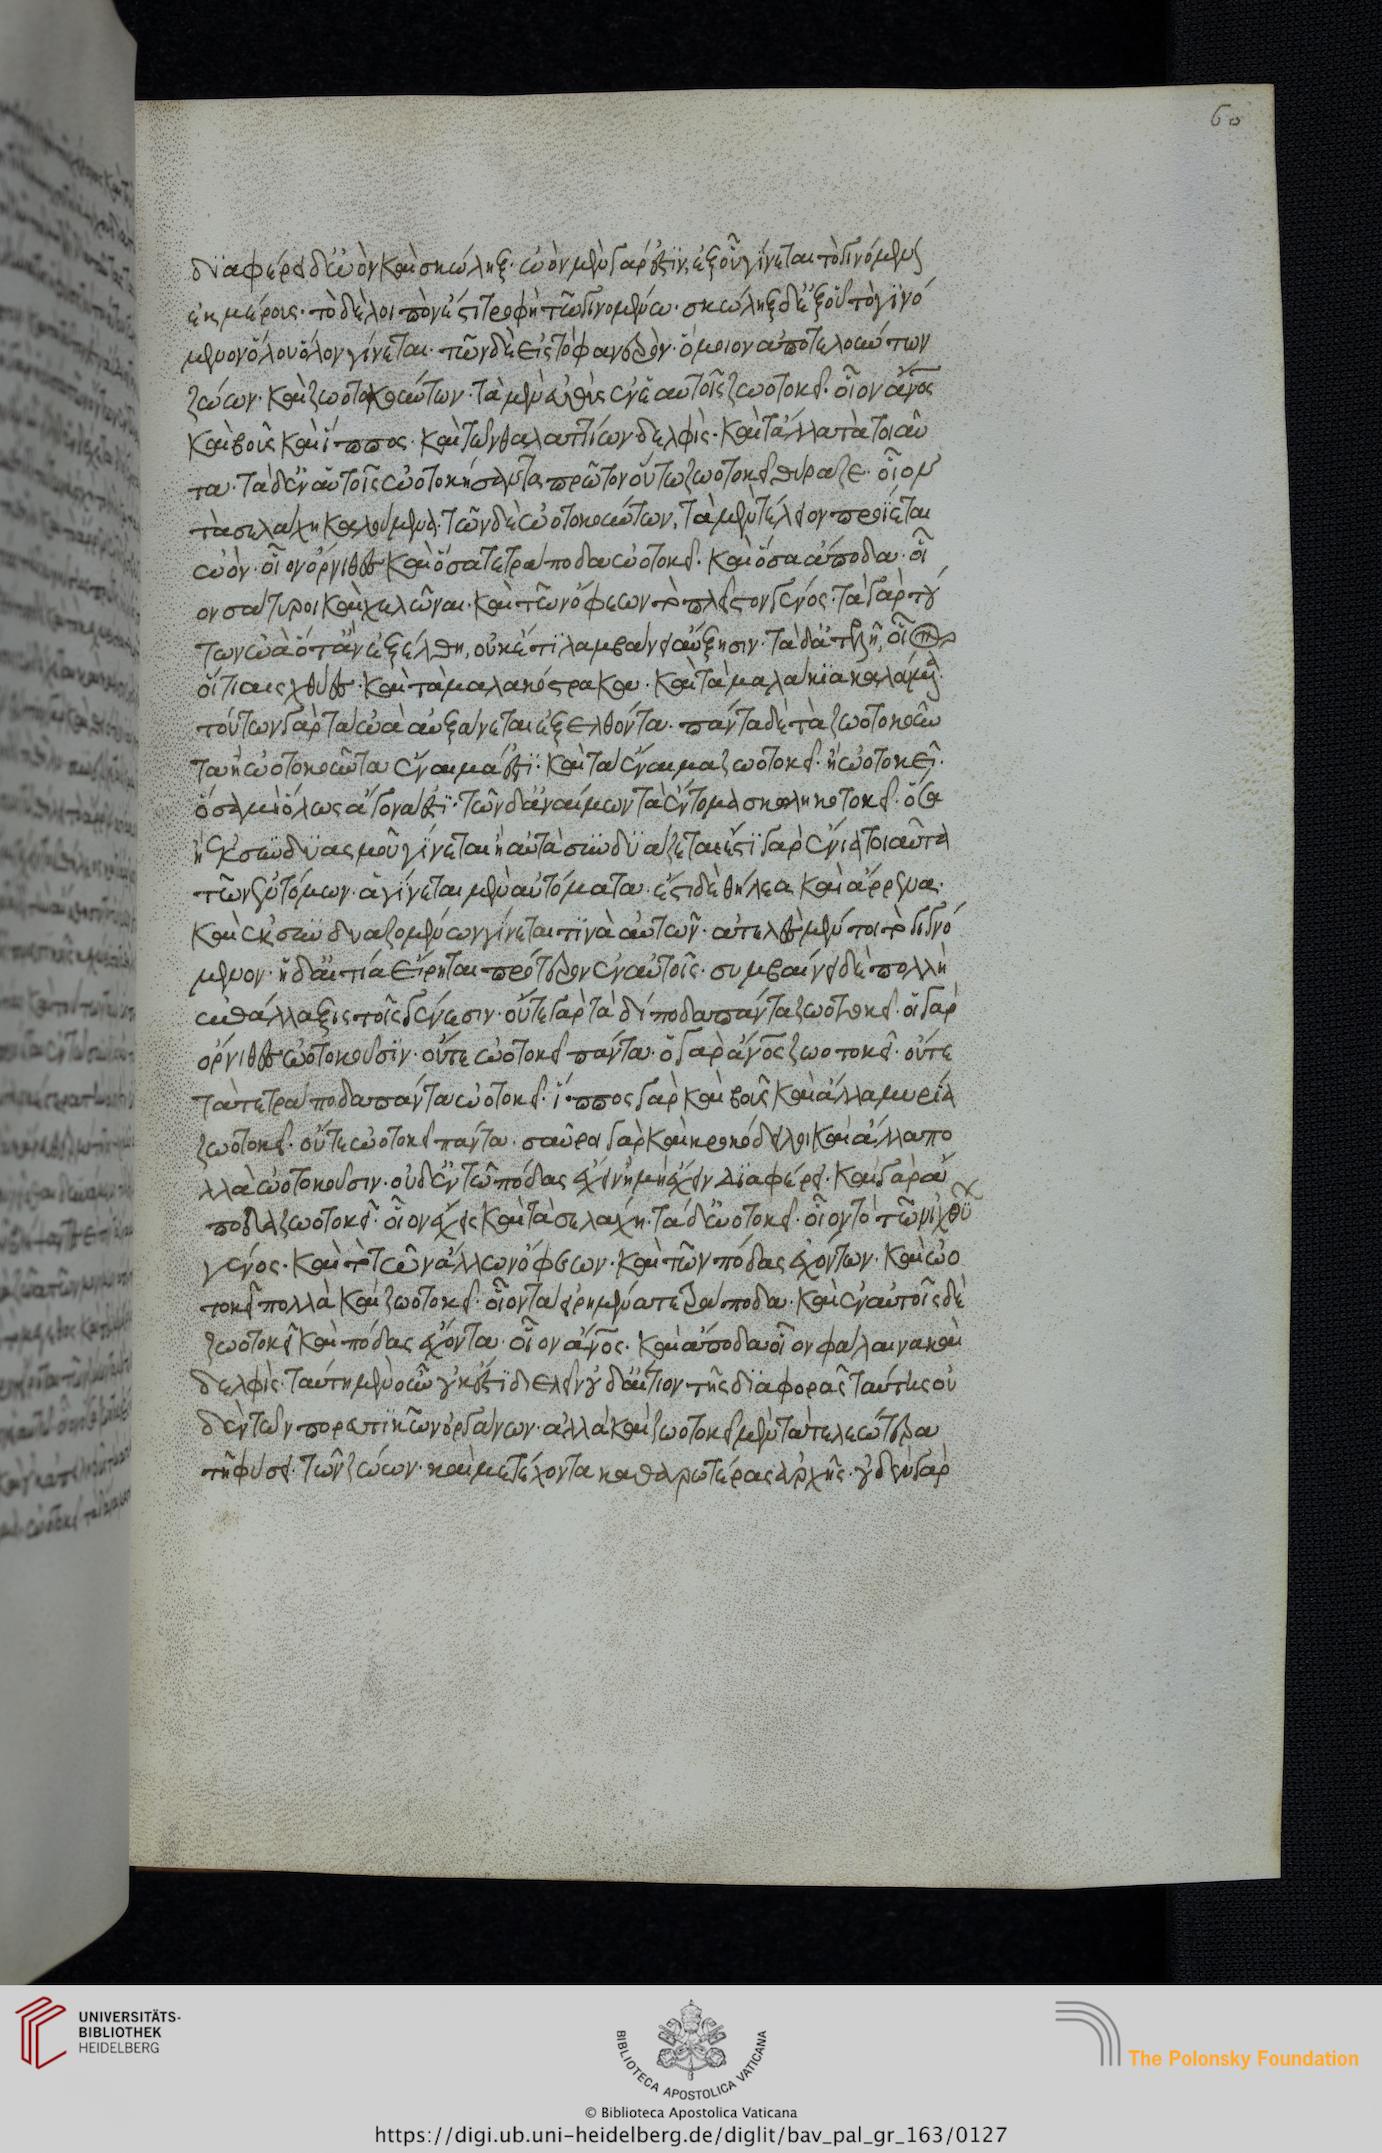 60
διαφέρει δ' ὠὸν καὶ σκώληξ· ὠὸν μὲν γάρ ἐστϊν, ἐξ οὗ γίνεται τὸ γινόμενον
ἐκ μέρους· τὸ δὲ λοιπὸν ἐστὶ τροφὴ τῶ γινομένω· σκώληξ δ' ἐξ οὗ τὸ γϊνό
μενον ὅλου ὅλον γίνεται· τῶν δὲ εἰς τὸ φανερὸν ὅμοιον ἀποτελούντων
ζώων· καὶ ζωοτοκούντων· τὰ μὲν εὐθὺς ἐν ἑαυτοῖς ζωοτοκεῖ· οἷον ἄνος
καὶ βοῦς καὶ ἵππος· καὶ τῶν θαλαττίων δελφὶς· καὶ τἄλλα τὰ τοιαῦ
τα· τὰ δ' ἐν αὑτοῖς ὠοτοκήσαντα πρῶτον οὕτω ζωοτοκεῖ θύραζε· οἷον
τὰ σελάχη καλούμενα· τῶν δὲ ὠοτοκούντων, τὰ μὲν τέλειον προΐεται
ὠὸν· οἷον ὄρνιθες καὶ ὅσα τετράποδα ὠοτοκεῖ· καὶ ὅσα ἄποδα· οἷ
ον σαῦροι καὶ χελῶναι· καὶ τῶν ὄφεων τὸ πλεῖστον γένος· τὰ γὰρ τού
των ὠὰ ὅταν ἐξέλθη, οὐκέτι λαμβάνει αὔξησιν· τὰ δ' ἀτελῆ, οἷον
οἵ τε ἰχθύες· καὶ τὰ μαλακόστρακα· καὶ τὰ μαλάκϊα καλούμενα·
τούτων γὰρ τὰ ὠὰ αὐξάνεται ἐξελθόντα· πάντα δὲ τὰ ζωοτοκοῦν
τα ἢ ὠοτοκοῦντα ἔναιμά ἐστϊ· καὶ τὰ ἔναιμα ζωοτοκεῖ· ἢ ὠοτοκεῖ·
ὅσα μὴ ὅλως ἄγονά ἐστϊ· τῶν δ' ἀναίμων τὰ ἔντομα σκωληκοτοκεῖ· ὅσα
ἢ ἐκ συνδϋασμοῦ γίνεται ἢ αὐτὰ συνδϋάζεται· ἔστϊ γὰρ ἔνια τοιαῦτα
τῶν ἐντόμων· ἃ γίνεται μὲν αὐτόματα· ἐστὶ δὲ θήλεα καὶ ἄρρενα·
καὶ ἐκ συνδυαζομένων γίνεταί τϊ ὑπ' αὐτῶν· ἀτελὲς μέντοι τὸ γιγνό
μενον· ἡ δ' αἰτία εἴρηται πρότερον ἐν αὐτοῖς· συμβαίνει δὲ πολλὴ
ἐπάλλαξις τοῖς γένεσιν· οὔτε γὰρ τὰ δίποδα πάντα ζωοτοκεῖ· οἱ γὰρ
ὄρνιθες ὠοτοκοῦσϊν· οὔτε ὠοτοκεῖ πάντα· ὁ γὰρ ἄνος ζωοτοκεῖ· οὔτε
τὰ τετράποδα πάντα ὠοτοκεῖ· ἵππος γὰρ καὶ βοῦς καὶ ἄλλα μυρία
ζωοτοκεῖ· οὔτε ὠοτοκεῖ πάντα· σαῦροι γὰρ καὶ κροκόδειλοι καὶ ἄλλα πο
λλὰ ὠοτοκοῦσιν· οὐδ' ἐν τῶ πόδας ἔχειν ἢ μὴ ἔχειν διαφέρει· καὶ γὰρ ἄ
ποδα ζωοτοκεῖ· οἷον ἔχεις καὶ τὰ σελάχη· τὰ δ' ὠοτοκεῖ· οἷον τὸ τῶν ἰχθύ
γένος· καὶ τὸ τῶν ἄλλων ὄφεων· καὶ τῶν πόδας ἐχόντων· καὶ ὠο
τοκεῖ πολλὰ καὶ ζωοτοκεῖ· οἷον τὰ εἰρημένα τετράποδα· καὶ ἐν αὑτοῖς δὲ
ζωοτοκεῖ καὶ πόδας ἔχοντα· οἷον ἄνος· καὶ ἄποδα οἷον φάλαινα καὶ
δελφὶς· ταύτη μὲν οὖν οὐκ ἔστϊ διελεῖν οὐδ' αἴτιον τῆς δϊαφορᾶς ταύτης οὐ
δὲν τῶν πορευτϊκῶν ὀργάνων· ἀλλὰ καὶ ζωοτοκεῖ μὲν τὰ τελεώτερα
τὴν φύσιν τῶν ζώων· καὶ μετέχοντα καθαρωτέρας ἀρχῆς· οὐδὲν γὰρ
UNIVERSITÄTS-
BIBLIOTHEK
HEIDELBERG
BIBLIOTECA APOSTOLICA VATICANA
The Polonsky Foundation
© Biblioteca Apostolica Vaticana
https://digi.ub.uni-heidelberg.de/diglit/bav_pal_gr_163/0127